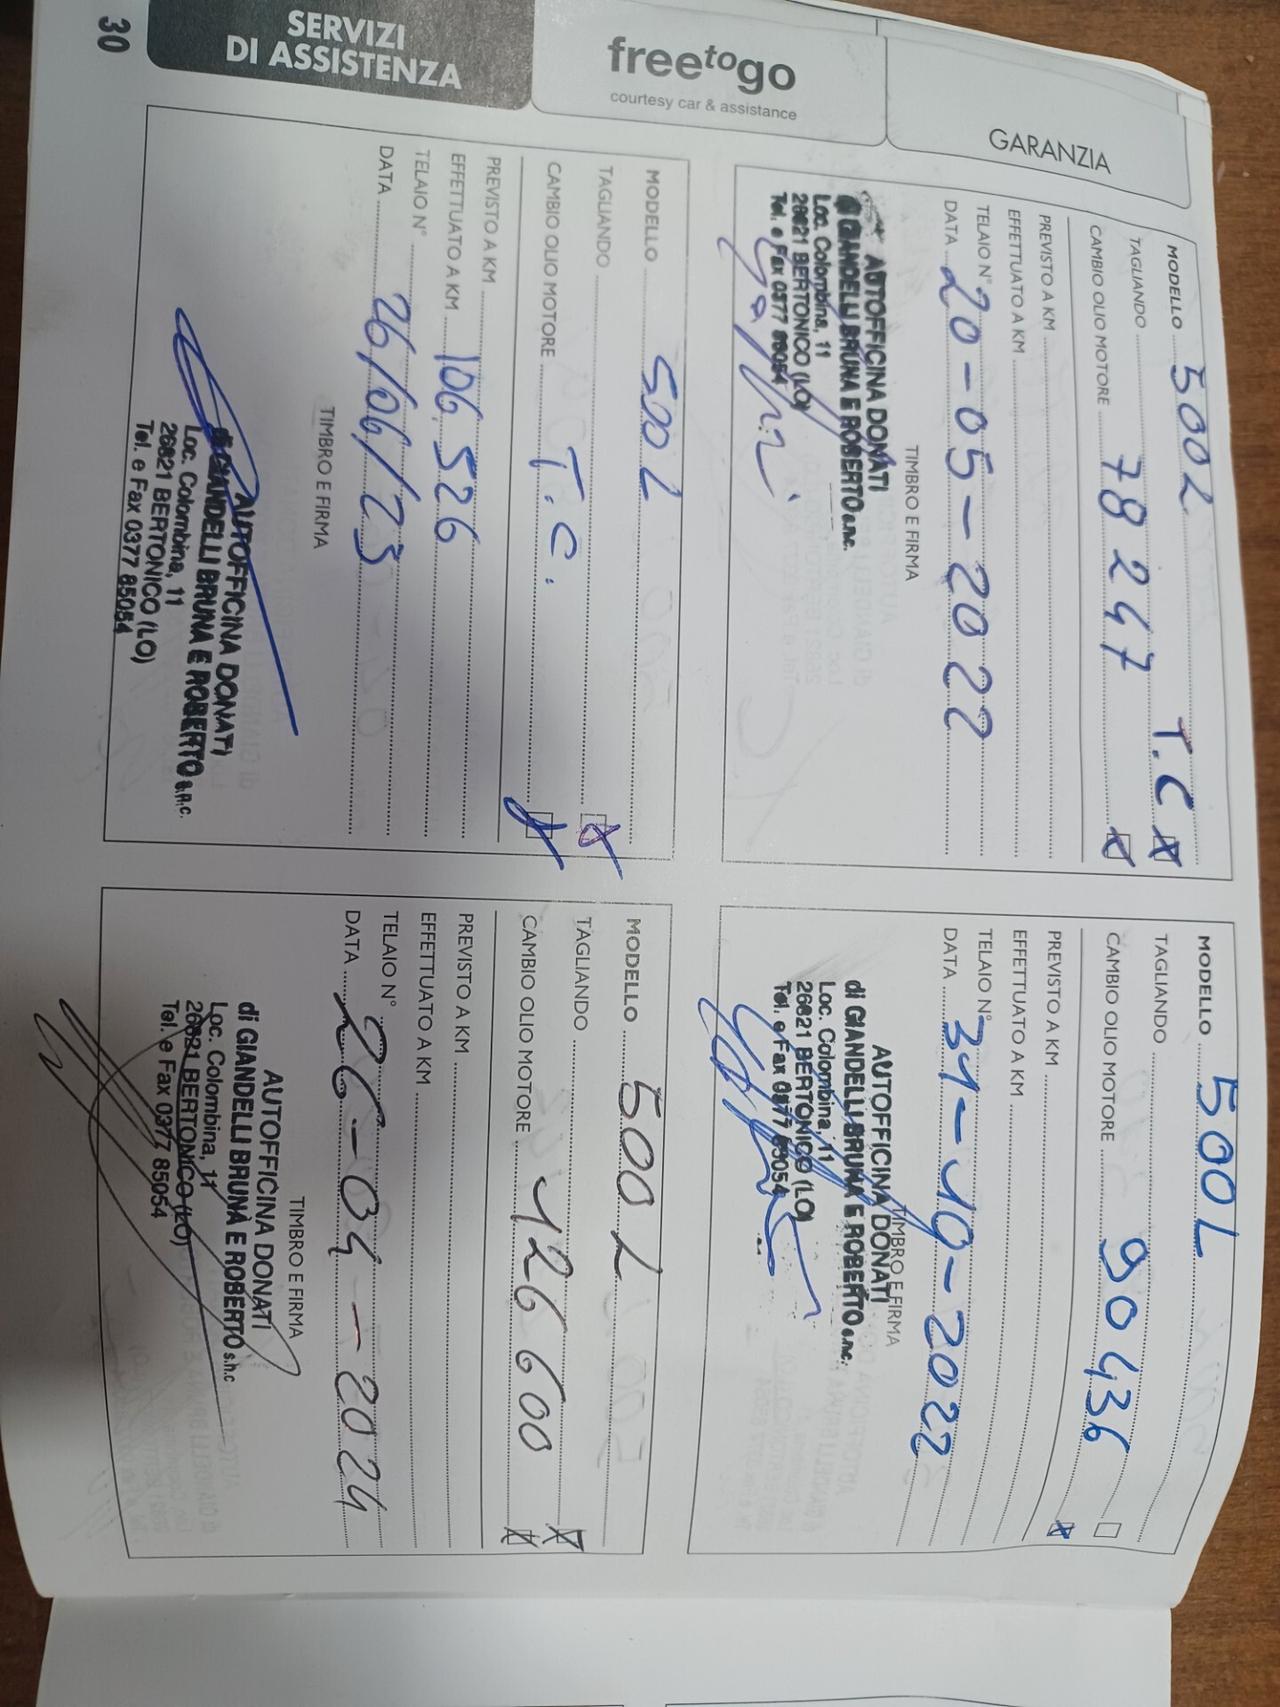 GARANZIA
freetogo
courtesy car & assistance
SERVIZI
DI ASSISTENZA
30
MODELLO 500L
TAGLIANDO T.C
CAMBIO OLIO MOTORE 78247
PREVISTO A KM
EFFETTUATO A KM
TELAIO N°
DATA 20-05-2022
TIMBRO E FIRMA
AUTOFFICINA DONATI
di GIANDELLI BRUNA E ROBERTO s.n.c.
Loc. Colombina, 11
26821 BERTONICO (LO)
Tel. e Fax 0377 85054
MODELLO 500L
TAGLIANDO
CAMBIO OLIO MOTORE 90436
PREVISTO A KM
EFFETTUATO A KM
TELAIO N°
DATA 31-10-2022
TIMBRO E FIRMA
AUTOFFICINA DONATI
di GIANDELLI BRUNA E ROBERTO s.n.c.
Loc. Colombina, 11
26821 BERTONICO (LO)
Tel. e Fax 0377 85054
MODELLO 500L
TAGLIANDO
CAMBIO OLIO MOTORE T.C.
PREVISTO A KM
EFFETTUATO A KM 106526
TELAIO N°
DATA 26/06/23
TIMBRO E FIRMA
AUTOFFICINA DONATI
di GIANDELLI BRUNA E ROBERTO s.n.c.
Loc. Colombina, 11
26821 BERTONICO (LO)
Tel. e Fax 0377 85054
MODELLO 500L
TAGLIANDO
CAMBIO OLIO MOTORE 126600
PREVISTO A KM
EFFETTUATO A KM
TELAIO N°
DATA 26-04-2024
TIMBRO E FIRMA
AUTOFFICINA DONATI
di GIANDELLI BRUNA E ROBERTO s.n.c
Loc. Colombina, 11
26821 BERTONICO (LO)
Tel. e Fax 0377 85054